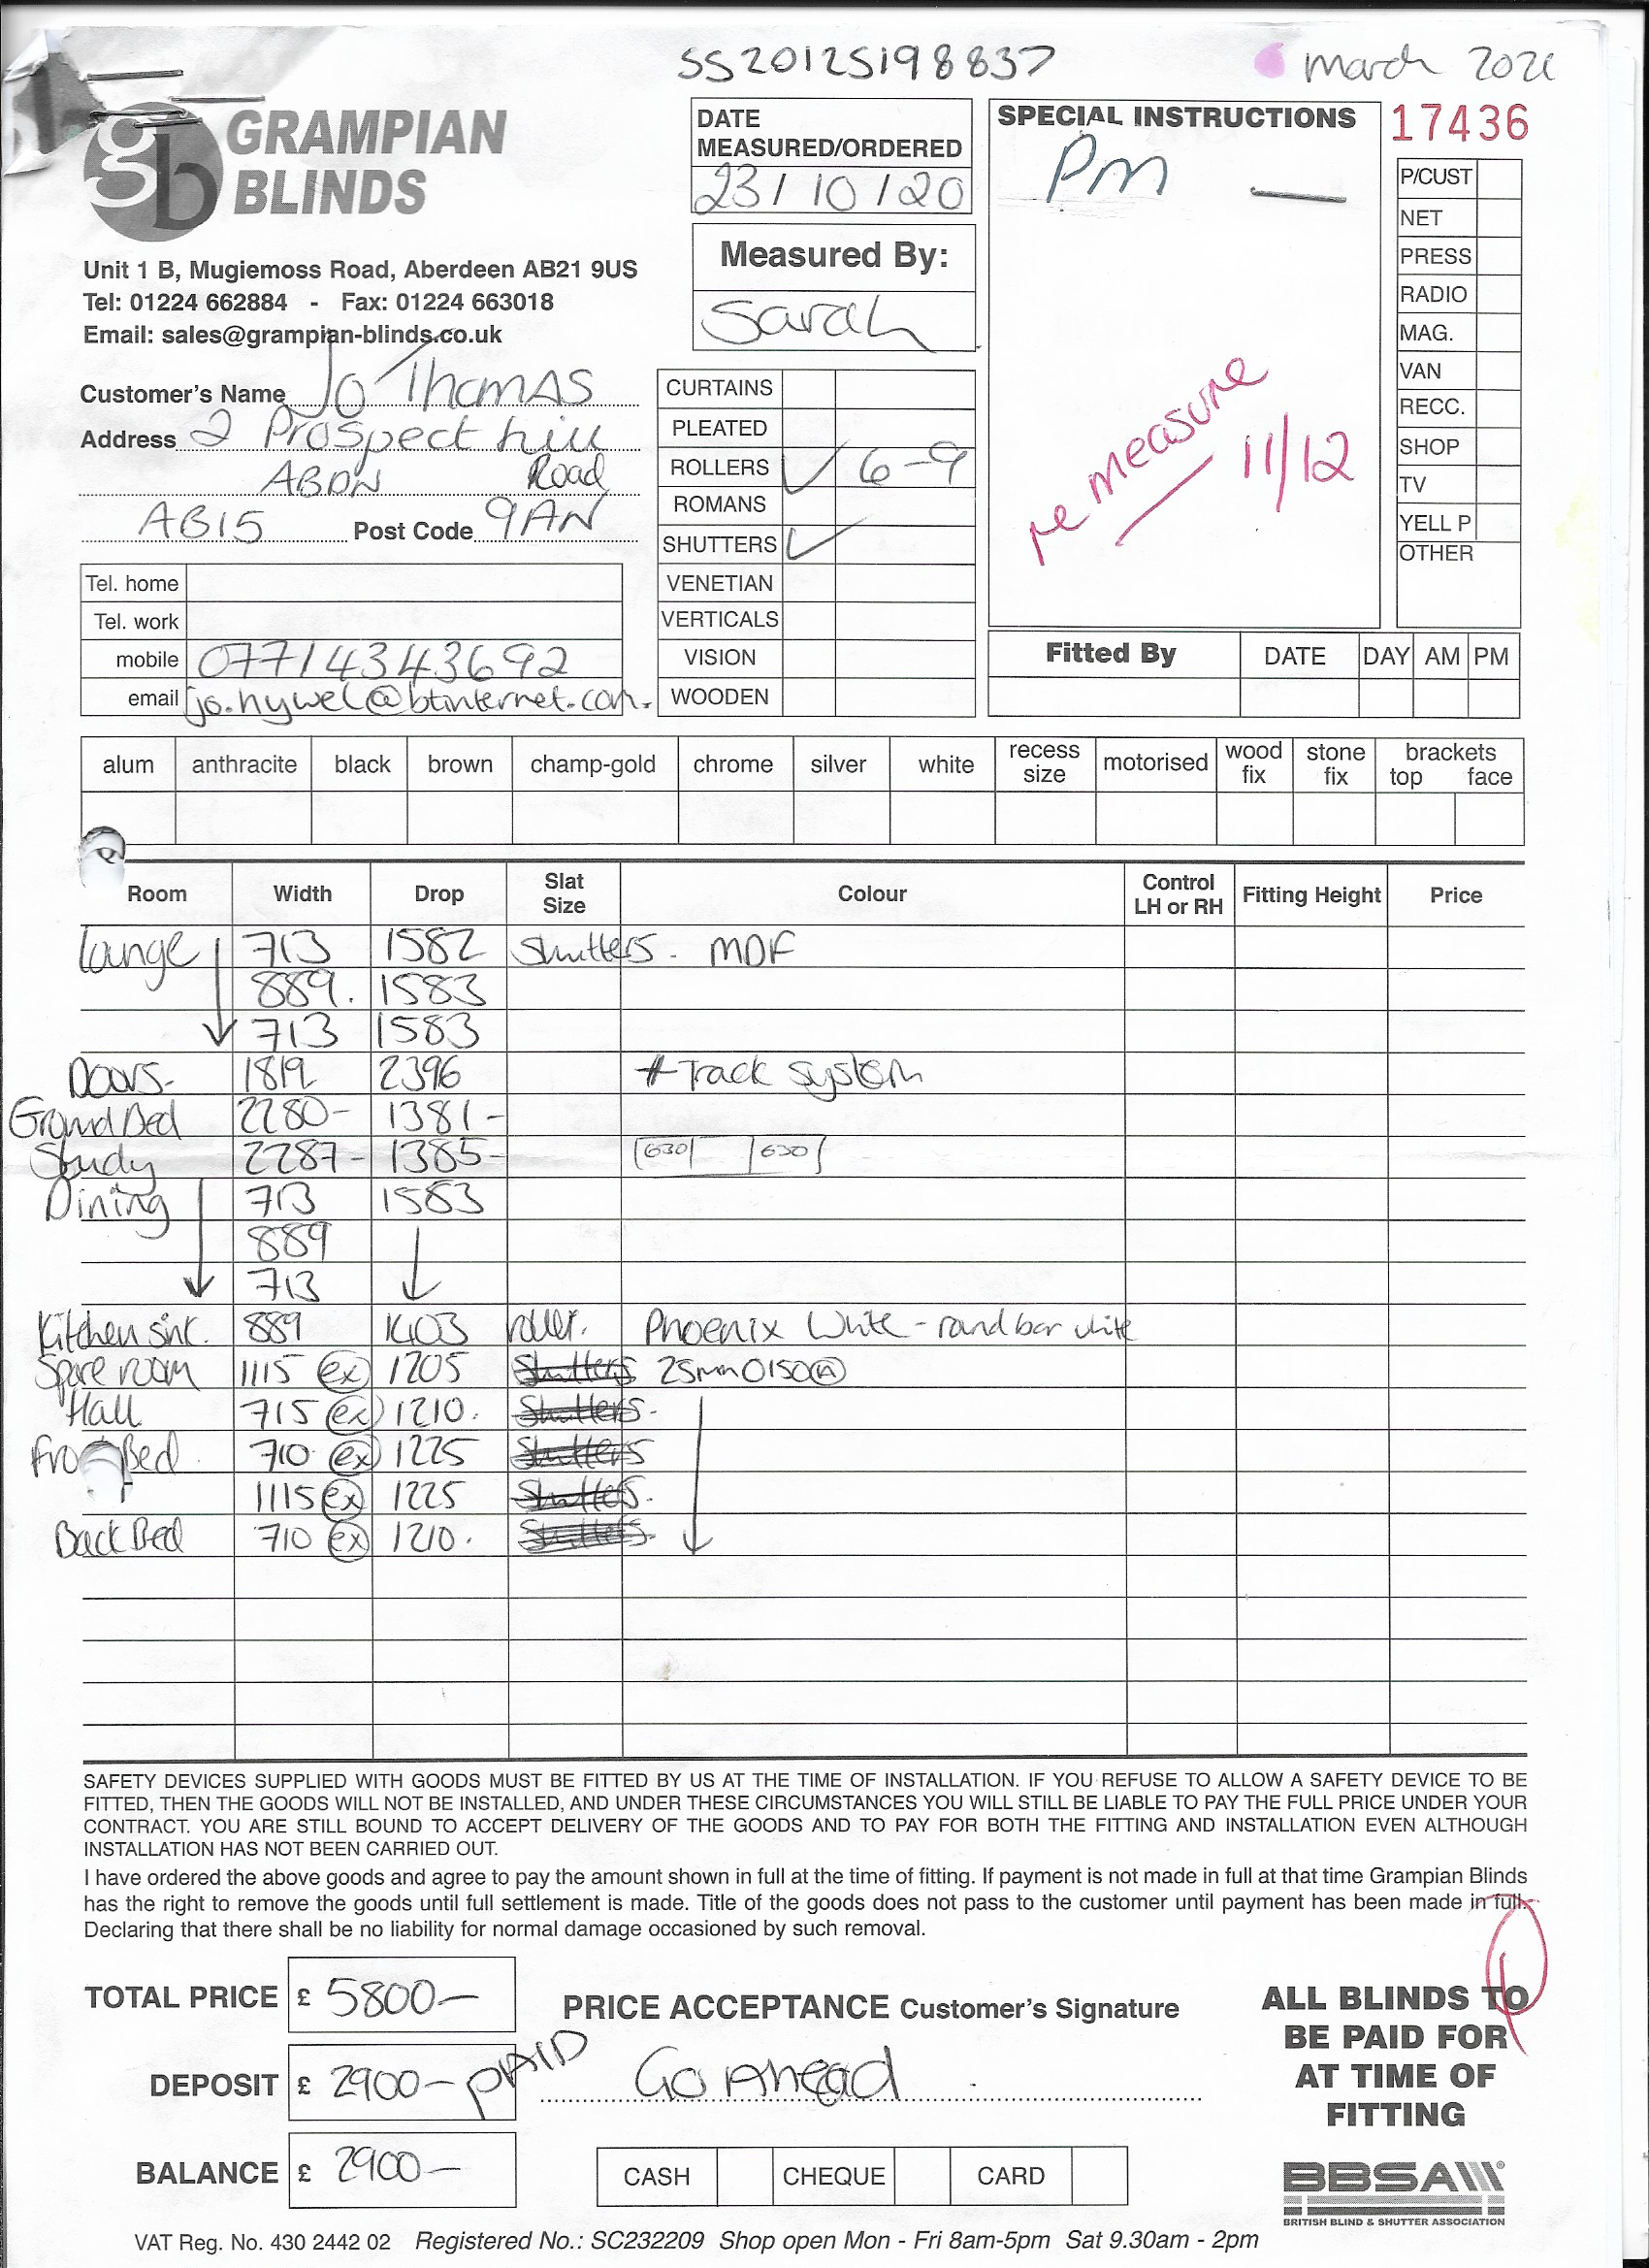 SS2012S198837
march 2021
GRAMPIAN
BLINDS
Unit 1 B, Mugiemoss Road, Aberdeen AB21 9US
Tel: 01224 662884 - Fax: 01224 663018
Email: sales@grampian-blinds.co.uk
DATE
MEASURED/ORDERED
23/10/20
Measured By:
Sarah
SPECIAL INSTRUCTIONS
PM
re measure 11/12
17436
P/CUST
NET
PRESS
RADIO
MAG.
VAN
RECC.
SHOP
TV
YELL P
OTHER
Customer's Name Jo Thomas
Address 2 Prospect hill
ABDN Road
AB15 Post Code 9AN
Tel. home
Tel. work
mobile 07714343692
email jo.hywel@btinternet.com.
CURTAINS
PLEATED
ROLLERS ✓ 6-9
ROMANS
SHUTTERS ✓
VENETIAN
VERTICALS
VISION
WOODEN
Fitted By DATE DAY AM PM
alum anthracite black brown champ-gold chrome silver white recess size motorised wood fix stone fix brackets top face
Room Width Drop Slat Size Colour Control LH or RH Fitting Height Price
Lounge 713 1582 Shutters - MDF
889. 1583
713 1583
Doors- 1819 2396 Track system
Grand Bed 2280- 1381-
Study 2287- 1385- 630 630
Dining 713 1583
889
713
Kitchen sink. 889 1403 roller. Phoenix White - round bar white
Spare room 1115 ex 1205 Shutters 25mm 0150 A
Hall 715 ex 1210. Shutters.
Bed 710 ex 1225 Shutters
1115 ex 1225 Shutters.
Back Bed 710 ex 1210. Shutters.
SAFETY DEVICES SUPPLIED WITH GOODS MUST BE FITTED BY US AT THE TIME OF INSTALLATION. IF YOU REFUSE TO ALLOW A SAFETY DEVICE TO BE
FITTED, THEN THE GOODS WILL NOT BE INSTALLED, AND UNDER THESE CIRCUMSTANCES YOU WILL STILL BE LIABLE TO PAY THE FULL PRICE UNDER YOUR
CONTRACT. YOU ARE STILL BOUND TO ACCEPT DELIVERY OF THE GOODS AND TO PAY FOR BOTH THE FITTING AND INSTALLATION EVEN ALTHOUGH
INSTALLATION HAS NOT BEEN CARRIED OUT.
I have ordered the above goods and agree to pay the amount shown in full at the time of fitting. If payment is not made in full at that time Grampian Blinds
has the right to remove the goods until full settlement is made. Title of the goods does not pass to the customer until payment has been made in full.
Declaring that there shall be no liability for normal damage occasioned by such removal.
TOTAL PRICE £ 5800-
DEPOSIT £ 2900- PAID
BALANCE £ 2900-
PRICE ACCEPTANCE Customer's Signature
Go Ahead
CASH CHEQUE CARD
ALL BLINDS TO
BE PAID FOR
AT TIME OF
FITTING
BBSA
BRITISH BLIND & SHUTTER ASSOCIATION
VAT Reg. No. 430 2442 02 Registered No.: SC232209 Shop open Mon - Fri 8am-5pm Sat 9.30am - 2pm